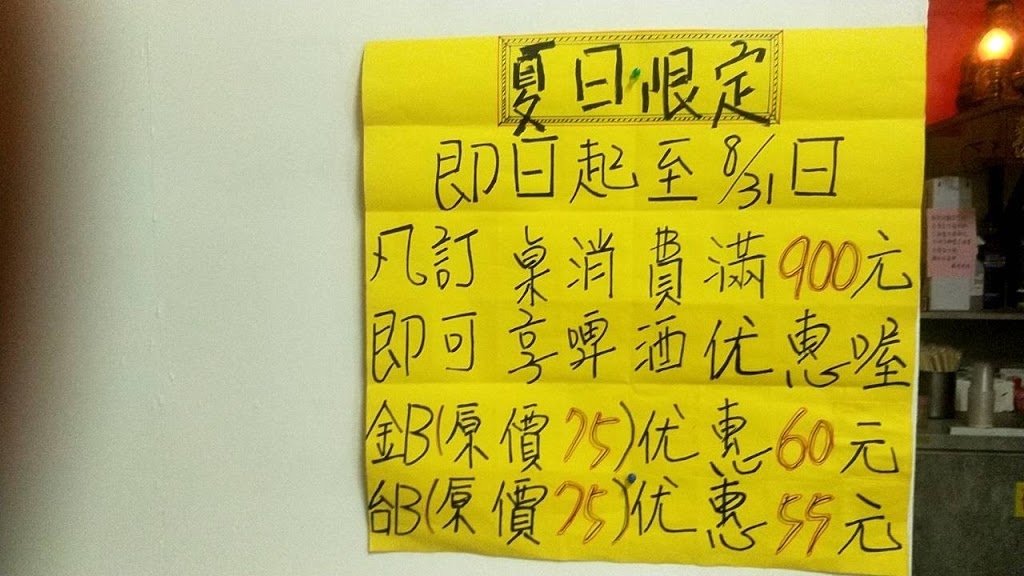 夏日限定
即日起至8/31日
凡訂桌消費滿900元
即可享啤酒优惠喔
金B(原價75)优惠60元
台B(原價75)优惠55元